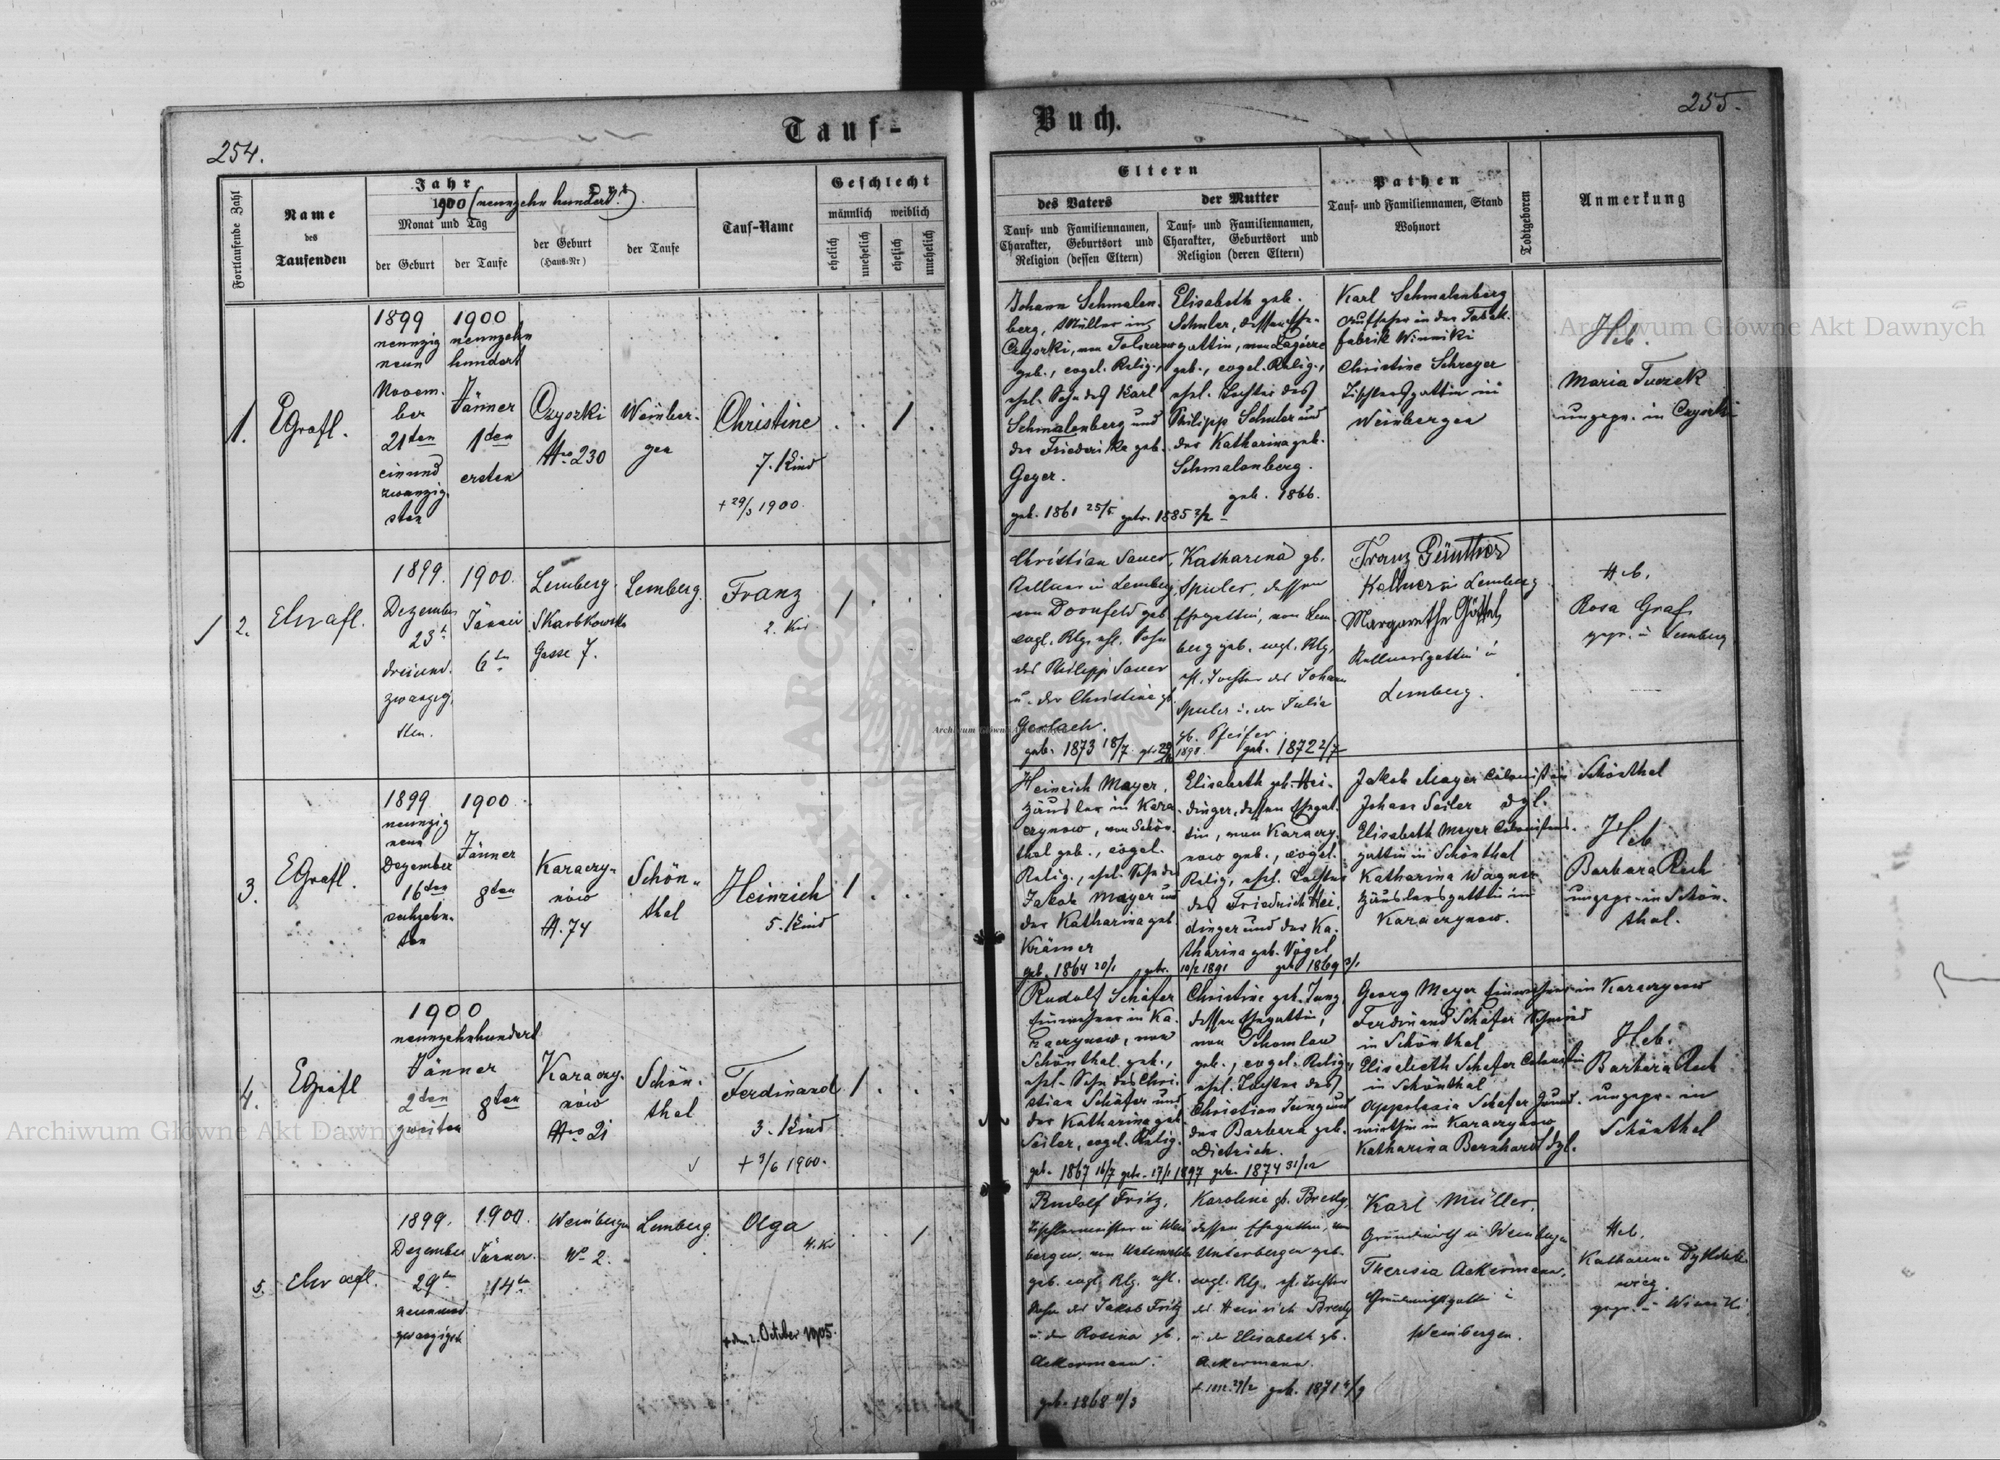 Tauf-
Buch.
254.
255.
Fortlaufende Zahl
Name
des
Taufenden
Jahr
1900 (neunzehnhundert)
Monat und Tag
der Geburt
der Taufe
Ort
der Geburt
(Haus-Nr)
der Taufe
Tauf-Name
Geschlecht
männlich
weiblich
ehelich
unehelich
ehelich
unehelich
Eltern
des Vaters
Tauf- und Familiennamen,
Charakter, Geburtsort und
Religion (dessen Eltern)
der Mutter
Tauf- und Familiennamen,
Charakter, Geburtsort und
Religion (deren Eltern)
Pathen
Tauf- und Familiennamen, Stand
Wohnort
Todtgeboren
Anmerkung
1.
EGrafl.
1899
neunzig
neun
Novem-
ber
21ten
einund
zwanzig-
sten
1900
neunzehn
hundert
Jänner
1ten
ersten
Czyorki
Nro 230
Weinber-
gen
Christine
7. Kind
+ 29/3 1900.
1
Johann Schmalen-
berg, Müller in
Czyorki, von
geb., evgel. Relig.,
ehel. Sohn des Karl
Schmalenberg und
der Friederike geb.
Geyer.
geb. 1861 25/5 getr. 1885
Elisabeth geb.
Schuler, dessen Ehe-
gattin, von
geb., evgel. Relig.,
ehel. Tochter des
Philipp Schuler und
der Katharina geb.
Schmalenberg.
geb. 1866.
Karl Schmalenberg
Aufseher in der Tabak-
fabrik Winniki
Christine Schreyer
Tischlersgattin in
Weinbergen
Heb.
Maria Turek
ungepr. in Czyorki
2.
1899.
Dezember
23t
dreiund-
zwanzig-
sten.
1900.
Jänner
6ten
Lemberg.
Skarbkowska
Gasse 7.
Lemberg.
Franz
2. Kind
1
Christian Sauer,
Kellner in Lemberg
von Dornfeld geb.
evgl. Rlg. ehl. Sohn
des Philipp Sauer
u. der Christine gb.
Gerlach.
geb. 1873 18/7
Katharina gb.
Spuler, dessen
Ehegattin, von Lem-
berg geb. evgl. Rlg.
ehl. Tochter des Johann
Spuler u. der Julia
gb. Pfeifer
geb. 1872 2/7
Franz Günther
Kellner in Lemberg
Margarethe Göttel
Kellnersgattin in
Lemberg.
Heb.
Rosa Graf
gepr. in Lemberg
3.
EGrafl.
1899
neunzig
neun
Dezember
16ten
sechzehn-
ten
1900
Jänner
8ten
Karaczy-
nów
N. 74
Schön-
thal
Heinrich
5. Kind
1
Heinrich Mayer,
Häusler in Kara-
czynow, von Schön-
thal geb., evgel.
Relig., ehel. Sohn des
Jakob Mayer und
der Katharina geb.
Krämer
geb. 1864 20/1 getr.
Elisabeth geb. Hei-
dinger, dessen Ehegat-
tin, von Karaczy-
now geb., evgel.
Relig., ehel. Tochter
des Friedrich Hei-
dinger und der Ka-
tharina geb. Vögel
10/2 1891 geb. 1869 3/1
Jakob Mayer Colonist in Schönthal
Johann Seiler dgl.
Elisabeth Meyer Colonistens-
gattin in Schönthal
Katharina Wagner
Häuslersgattin in
Karaczynow.
Heb
Barbara Rech
ungepr. in Schön-
thal.
4.
EGrafl
1900
neunzehnhundert
Jänner
2ten
zweiten
8ten
Karaczy-
nów
Nro 21
Schön-
thal
Ferdinand
3. Kind
+ 3/6 1900.
1
Rudolf Schäfer
Einwohner in Ka-
raczynow, von
Schönthal geb.,
ehel. Sohn des Chri-
stian Schäfer und
der Katharina geb.
Seiler, evgel. Relig.
geb. 1867 16/7 getr. 17/1 1897 geb. 1874 31/12
Christine geb. Jung
dessen Ehegattin,
von Schomlau
geb., evgel. Relig.,
ehel. Tochter des
Christian Jung und
der Barbara geb.
Dietrich.
Georg Meyer Einwohner in Karaczynow
Ferdinand Schäfer Schmied
in Schönthal
Elisabeth Schefer Colonistin
in Schönthal
Appolonia Schäfer Grund-
wirthin in Karaczynow
Katharina Bernhard dgl.
Heb.
Barbara Rech
ungepr. in
Schönthal
5.
1899.
Dezember
29ten
neunund-
zwanzigst.
1900.
Jänner.
14ten
Weinbergen
No 2.
Lemberg.
Olga
4. Ki
2. October 1905.
1
Rudolf Fritz,
Tischlermeister in Wein-
bergen, von Unterwalden
geb. evgl. Rlg. ehl.
Sohn des Jakob Fritz
u. der Rosina gb.
Ackermann.
geb. 1868 11/3
Karoline gb. Bredy,
dessen Ehegattin, von
Unterbergen geb.
evgl. Rlg., ehl. Tochter
des Heinrich Bredy
u. der Elisabeth gb.
Ackermann.
geb. 1871 4/9
Karl Müller,
Grundwirth in Weinbergen
Theresia Ackermann,
Grundwirthsgattin in
Weinbergen.
Heb.
Katharina
gepr. in Winniki
Archiwum Główne Akt Dawnych
Archiwum Główne Akt Dawnych
Archiwum Główne Akt Dawnych